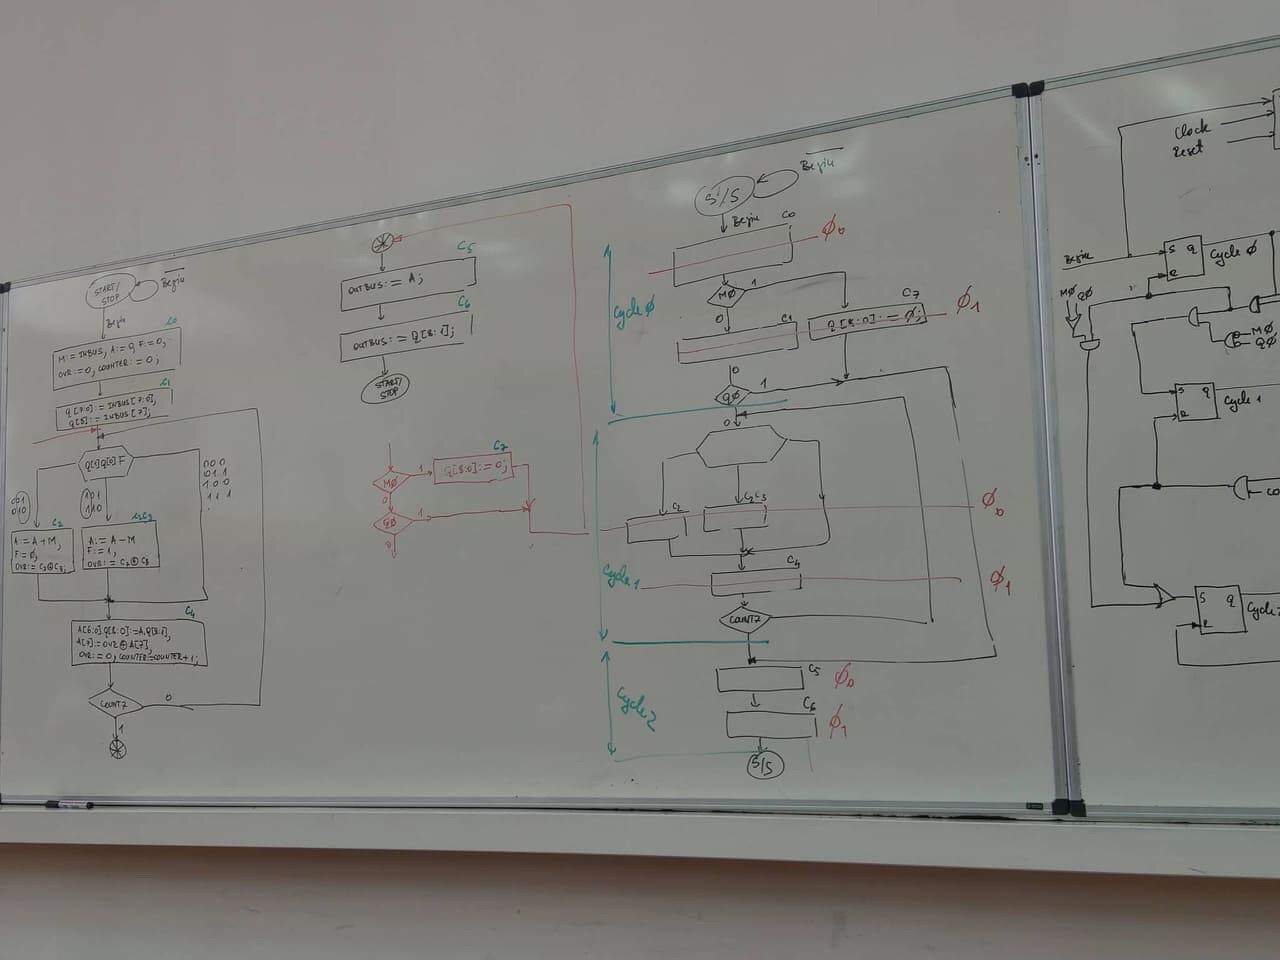 START/
STOP
Begin
Begin
C0
M:=INBUS, A:=0, F:=0,
OVR:=0, COUNTER:=0;
C1
Q[7:0]:=INBUS[7:0];
Q[8]:=INBUS[7];
Q[1]Q[0]F
001
010
101
110
000
011
100
111
C2
A:=A+M,
F:=0,
C2C3
A:=A-M
F:=1,
C4
A[6:0].Q[8:0]:=A.Q[8:1],
A[7]:=OVR⊕A[7],
OVR:=0, COUNTER:=COUNTER+1;
COUNT7
0
1
C5
OUTBUS:=A;
C6
OUTBUS:=Q[8:1];
START/
STOP
MØ
1
0
C7
Q[8:0]:=0;
QØ
1
0
S/S
Begin
Begin
C0
Φ0
Cycle Ø
MØ
1
0
C1
C7
Q[8:0]:=Ø;
Φ1
0
QØ
1
0
C2
C2C3
Φ0
Cycle 1
C4
Φ1
COUNT7
Cycle 2
C5
Φ0
C6
Φ1
S/S
Clock
Reset
Begin
S
Q
R
Cycle Ø
MØ
QØ
MØ
QØ
S
Q
R
Cycle 1
S
Q
R
Cycle 2